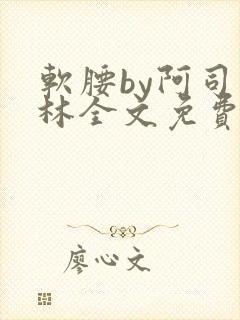 軟腰by阿司
林全文免費
廖心文